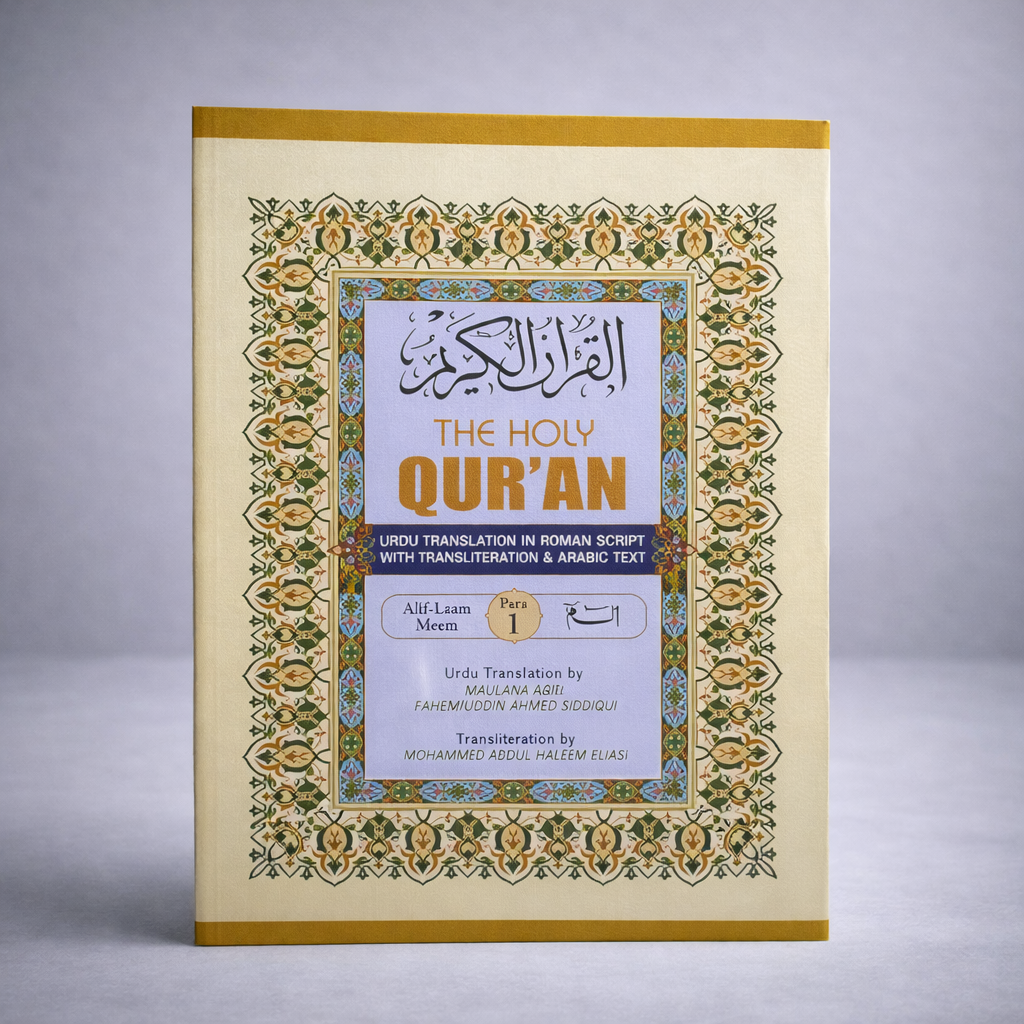 القرآن الكريم
THE HOLY
QUR'AN
URDU TRANSLATION IN ROMAN SCRIPT
WITH TRANSLITERATION & ARABIC TEXT
Alif-Laam
Meem
Para
1
الٓـمٓ
Urdu Translation by
MAULANA AQIL
FAHEMIUDDIN AHMED SIDDIQUI
Transliteration by
MOHAMMED ABDUL HALEEM ELIASI